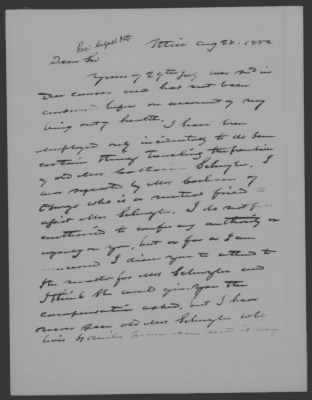 Utica Aug 28. 1852
Dear Sir
Yours of 29th July was recd in
due course and has not been
answered before on account of my
being out of health. I have been
employed only incidentally to do some
certain things touching the pension
of old Mrs Catharine Schuyler. I
was requested by Mrs Cochran of
Oswego who is a mutual friend to
assist Mrs Schuyler. I do not feel
authorized to confer any authority or
agency on you, but as far as I am
concerned I desire you to attend to
the matter for Mrs Schuyler and
I think she would give you the
compensation asked, but I have
never seen old Mrs Schuyler who
lives miles from